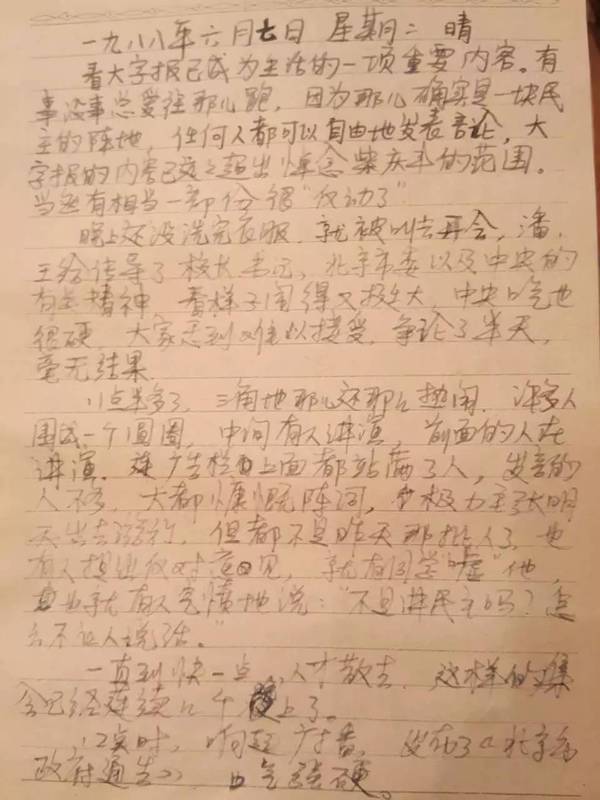 一九八八年六月七日 星期二 晴
看大字报已成为生活的一项重要内容。有
事没事总爱往那儿跑,因为那儿确实是一块民
主的阵地,任何人都可以自由地发表言论,大
字报的内容已超出悼念柴庆丰的范围。
当然有相当一部份很“反动了”
晚上还没洗完衣服,就被叫去开会,潘、
王给传导了校长书记,北京市委以及中央的
有关精神 看样子闹得又挺大,中央口气也
很硬,大家感到难以接受,争论了半天,
毫无结果.
11点半多了,三角地那儿还那么热闹,许多人
围成一个圆圈,中间有人讲演,前面的人在
讲演,连广告栏上面都站满了人,发言的
人不多,大都慷慨陈词,极力主张明
天出去游行,但都不是昨天那批人了,也
有人提出反对意见,就有同学“嘘”他,
也就有人气愤地说:“不是讲民主吗?怎
么不让人说话。”
一直到快一点,人才散去,这样的集
会已经连续几个晚上了。
12点时,响起广播,发布了《北京市
政府通告》 口气强硬。